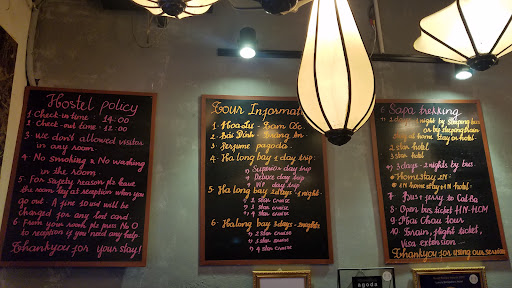 Hostel policy
1 - Check-in time : 14:00
1 - Check-out time : 12:00
3 - We don't allowed visitor
in any room.
4 - No smoking & No washing
in the room
5 - For safety reason pls leave
the room key at reception when you
go out. A fine 10usd will be
charged for any lost and
6 - From your room pls press No 0
to reception if you need any help.
Thank you for your stay!
Tour Informati
1 - Hoa Lư - Tam Cốc
2 - Bái Đính - Tràng An
3 - Perfume pagoda
4 - Ha long bay 1 day trip:
Superior day trip
Deluxe day trip
VIP day trip
5 - Ha long bay 2days - 1 night
2 star cruise
3 star cruise
4 star cruise
6 - Ha long bay 3days - 2nights
2 star cruise
3 star cruise
4 star cruise
6 - Sapa trekking
1 night by sleeping bus
or by sleeping train
home stay or hotel
2 star hotel
3 star hotel
3days - 2 nights by bus
Homestay 1N:
1N home stay + 1N hotel
7 - Bus + ferry to Cat Ba
8 - Open bus ticket HN-HCM
9 - Mai Chau tour
10 - Train, flight ticket,
Visa extension
Thank you for using our service
agoda